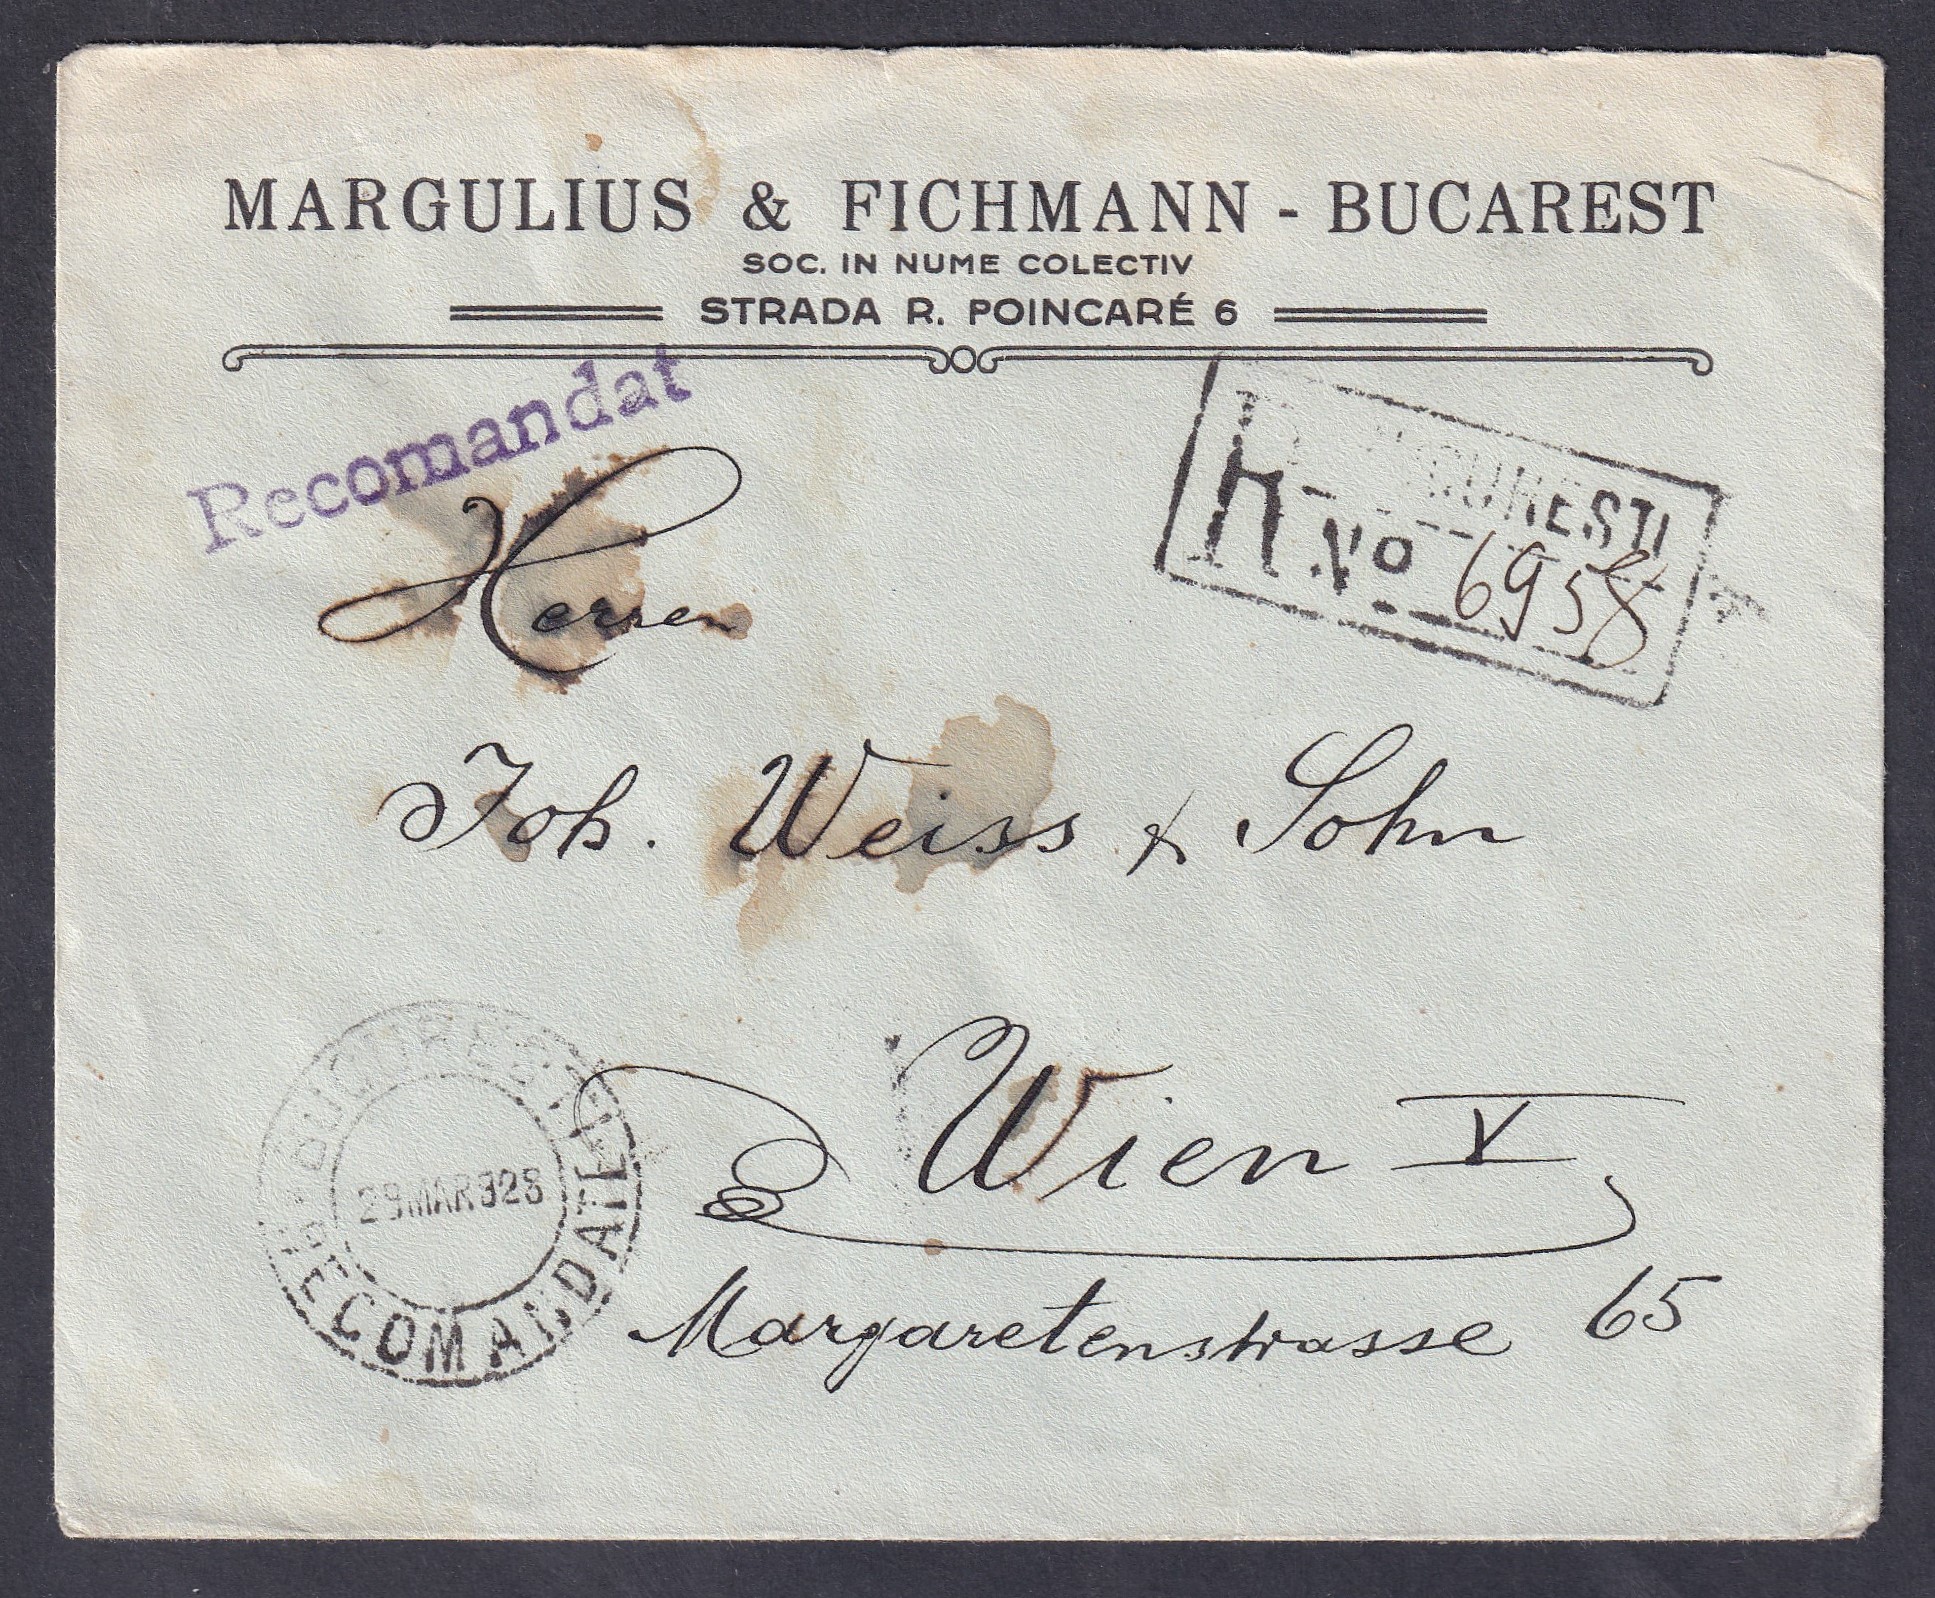 MARGULIUS & FICHMANN - BUCAREST
SOC. IN NUME COLECTIV
STRADA R. POINCARÉ 6
Recomandat
BUCURESTI
R No 6958
Herren
Joh. Weiss & Sohn
Wien V
Margaretenstrasse 65
BUCUREȘTI
29MAR928
RECOMANDATE